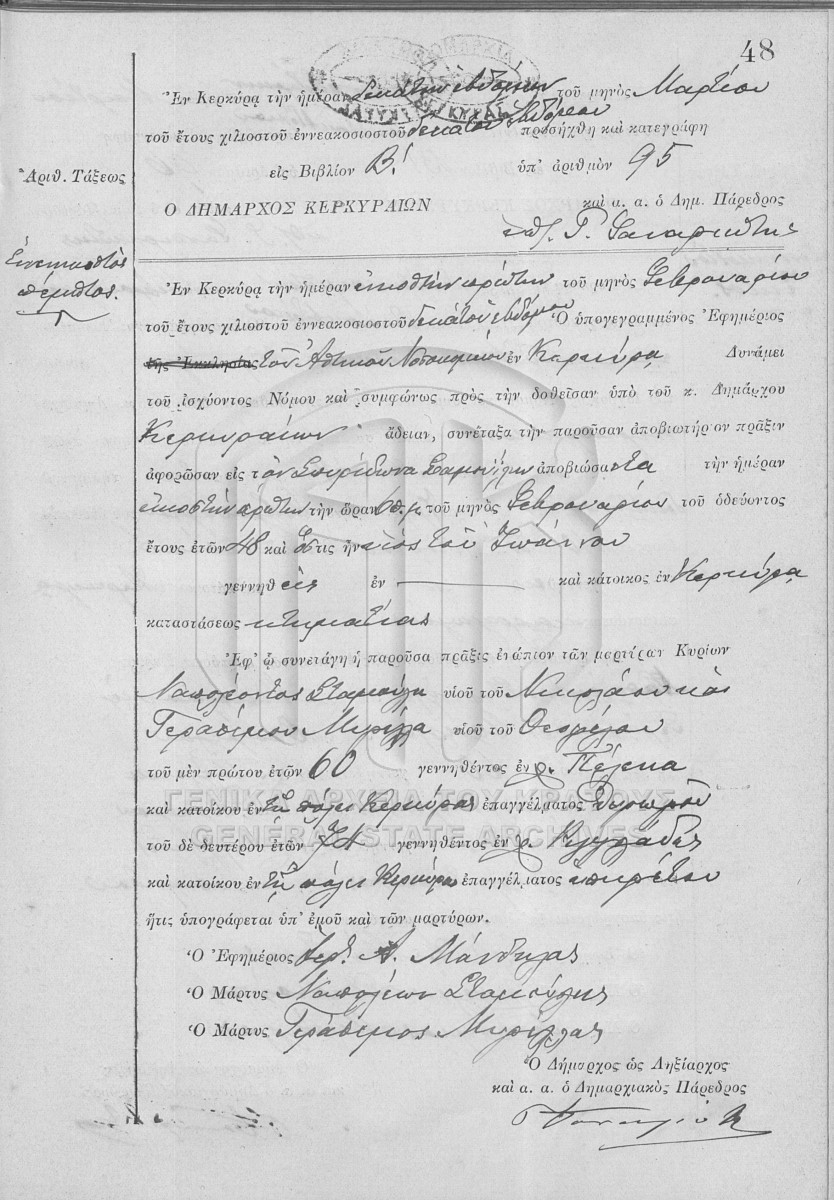 48
Ἐν Κερκύρᾳ τὴν ἡμέραν δεκάτην ἑβδόμην τοῦ μηνὸς Μαρτίου
τοῦ ἔτους χιλιοστοῦ ἐννεακοσιοστοῦ δεκάτου ἑβδόμου προσήχθη καὶ κατεγράφη
Ἀριθ. Τάξεως
εἰς Βιβλίον Β! ὑπ' ἀριθμὸν 95
Ο ΔΗΜΑΡΧΟΣ ΚΕΡΚΥΡΑΙΩΝ καὶ α. α. ὁ Δημ. Πάρεδρος
πέμπτος.
Ἐν Κερκύρᾳ τὴν ἡμέραν εἰκοστὴν πρώτην τοῦ μηνὸς Φεβρουαρίου
τοῦ ἔτους χιλιοστοῦ ἐννεακοσιοστοῦ δεκάτου ἑβδόμου Ὁ ὑπογεγραμμένος Ἐφημέριος
τῆς Ἐκκλησίας τοῦ Ἀστικοῦ Νοσοκομείου ἐν Κερκύρᾳ Δυνάμει
τοῦ ἰσχύοντος Νόμου καὶ συμφώνως πρὸς τὴν δοθεῖσαν ὑπὸ τοῦ κ. Δημάρχου
Κερκυραίων ἄδειαν, συνέταξα τὴν παροῦσαν ἀποβιωτήριον πρᾶξιν
ἀφορῶσαν εἰς τὸν Σπυρίδωνα ἀποβιώσαντα τὴν ἡμέραν
εἰκοστὴν πρώτην τὴν ὥραν τοῦ μηνὸς Φεβρουαρίου τοῦ ὁδεύοντος
ἔτους ἐτῶν 48 καὶ ὅστις ἦν υἱὸς τοῦ Ἰωάννου
γεννηθεὶς ἐν — καὶ κάτοικος ἐν Κερκύρᾳ
καταστάσεως κτηματίας
Ἐφ' ᾧ συνετάγη ἡ παροῦσα πρᾶξις ἐνώπιον τῶν μαρτύρων Κυρίων
Ναπολέοντος Σταμούλη υἱοῦ τοῦ Νικολάου καὶ
Γερασίμου υἱοῦ τοῦ
τοῦ μὲν πρώτου ἐτῶν 60 γεννηθέντος ἐν χ. Πέλεκα
καὶ κατοίκου ἐν τῇ πόλει Κερκύρας ἐπαγγέλματος θυρωροῦ
ΓΕΝΙΚΑ ΑΡΧΕΙΑ ΤΟΥ ΚΡΑΤΟΥΣ
GENERAL STATE ARCHIVES
τοῦ δὲ δευτέρου ἐτῶν γεννηθέντος ἐν χ.
καὶ κατοίκου ἐν τῇ πόλει Κερκύρας ἐπαγγέλματος ὑπηρέτου
ἥτις ὑπογράφεται ὑπ' ἐμοῦ καὶ τῶν μαρτύρων.
Ὁ Ἐφημέριος Ἱερ. Α. Μάνδηλας
Ὁ Μάρτυς Ναπολέων Σταμούλης
Ὁ Μάρτυς Γεράσιμος
Ὁ Δήμαρχος ὡς Ληξίαρχος
καὶ α. α. ὁ Δημαρχιακὸς Πάρεδρος